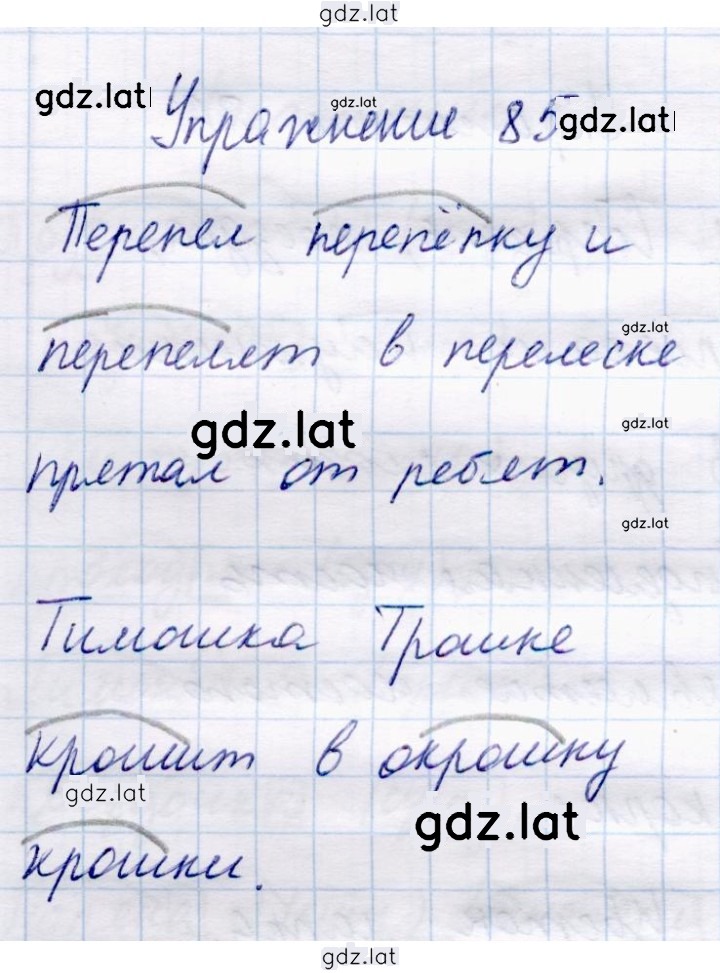 gdz.lat
gdz.lat
gdz.lat
Упражнение 85.
gdz.lat
Перепел перепёлку и
перепелят в перелеске
gdz.lat
gdz.lat
gdz.lat
прятал от ребят.
gdz.lat
Тимошка Трошке
крошит в окрошку
gdz.lat
gdz.lat
крошки.
gdz.lat